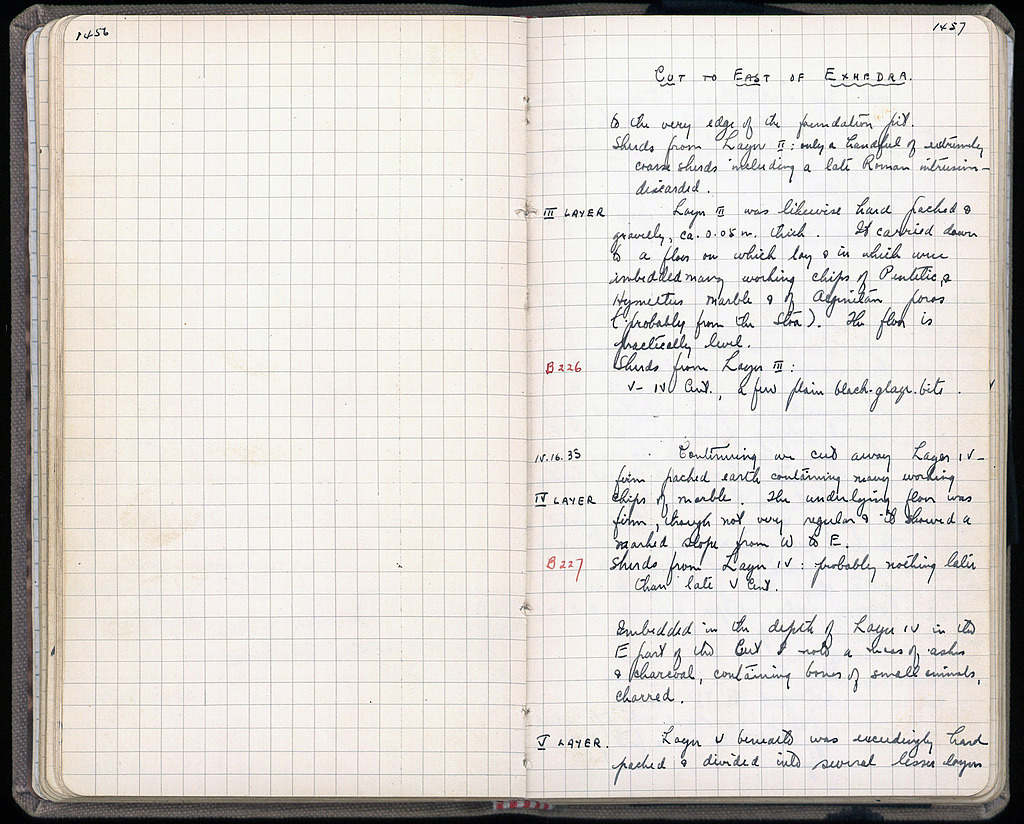 1456
1457
CUT TO EAST OF EXHEDRA.
to the very edge of the foundation pit.
Sherds from Layer II: only a handful of extremely
coarse sherds including a late Roman intrusion –
discarded.
III LAYER Layer III was likewise hard packed &
gravelly, ca. 0.05 m. thick. It carried down
to a floor on which lay & in which were
imbedded many working chips of Pentelic, &
Hymettus marble & of Aeginetan poros
(probably from the Stoa). The floor is
practically level.
B226 Sherds from Layer III:
V - IV Cent., a few plain black-glaze bits.
IV.16.35 Continuing we cut away Layer IV –
firm packed earth containing many working
IV LAYER chips of marble. The underlying floor was
firm, though not very regular & it showed a
marked slope from W to E.
B227 Sherds from Layer IV: probably nothing later
than late V Cent.
Embedded in the depth of Layer IV in the
E part of the Cut I note a mass of ashes
& charcoal, containing bones of small animals,
charred.
V LAYER. Layer V beneath was exceedingly hard
packed & divided into several lesser layers